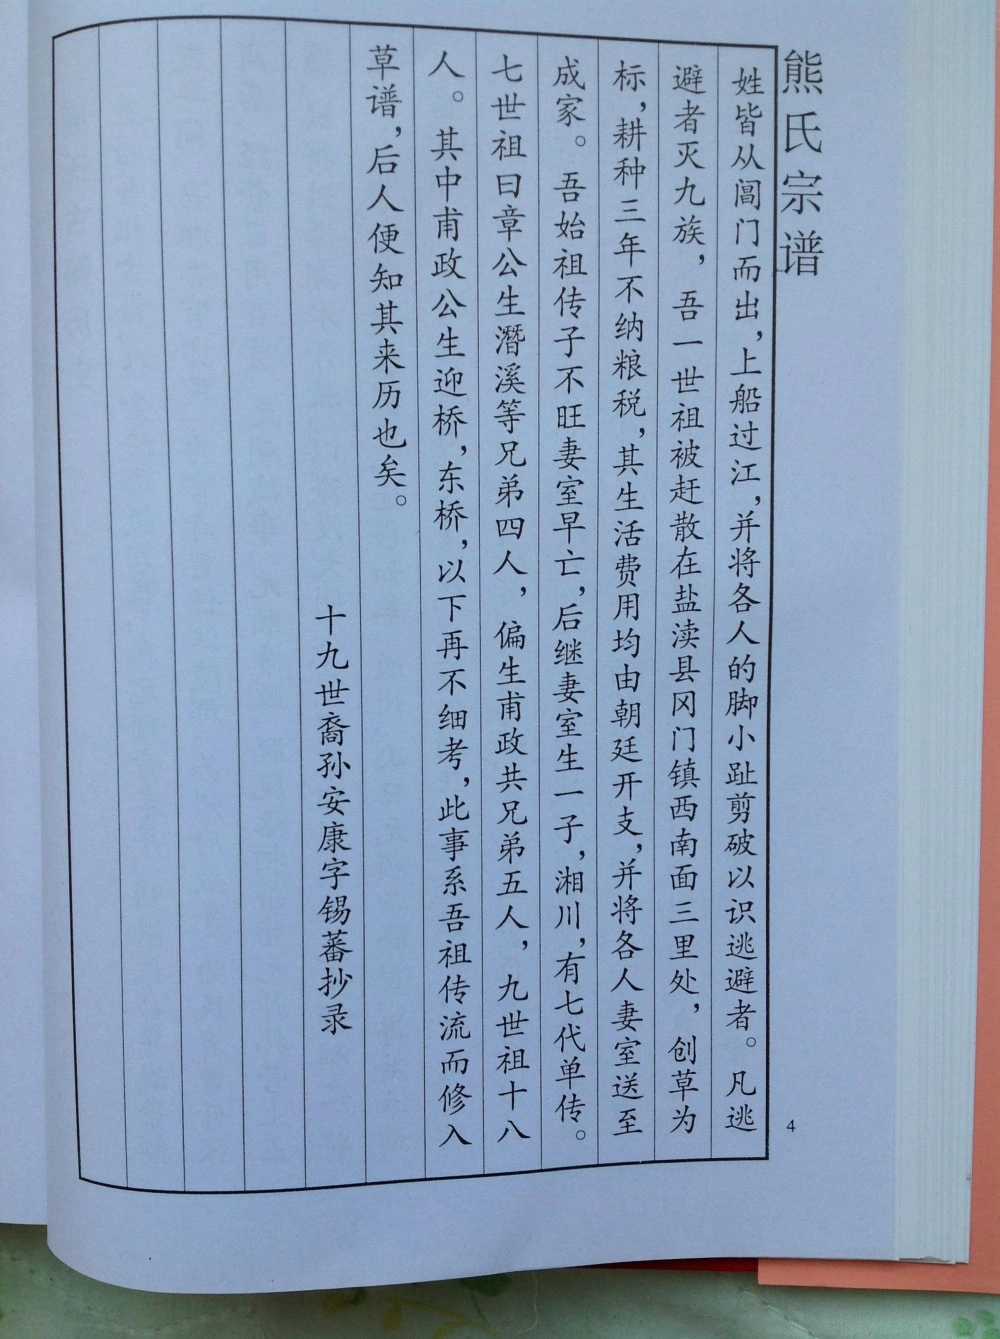 熊氏宗谱
姓皆从阊门而出，上船过江，并将各人的脚小趾剪破以识逃避者。凡逃
避者灭九族，吾一世祖被赶散在盐渎县冈门镇西南面三里处，创草为
标，耕种三年不纳粮税，其生活费用均由朝廷开支，并将各人妻室送至
成家。吾始祖传子不旺妻室早亡，后继妻室生一子，湘川，有七代单传。
七世祖曰章公生潛溪等兄弟四人，偏生甫政共兄弟五人，九世祖十八
人。其中甫政公生迎桥，东桥，以下再不细考，此事系吾祖传流而修入
草谱，后人便知其来历也矣。
十九世裔孙安康字锡蕃抄录
4